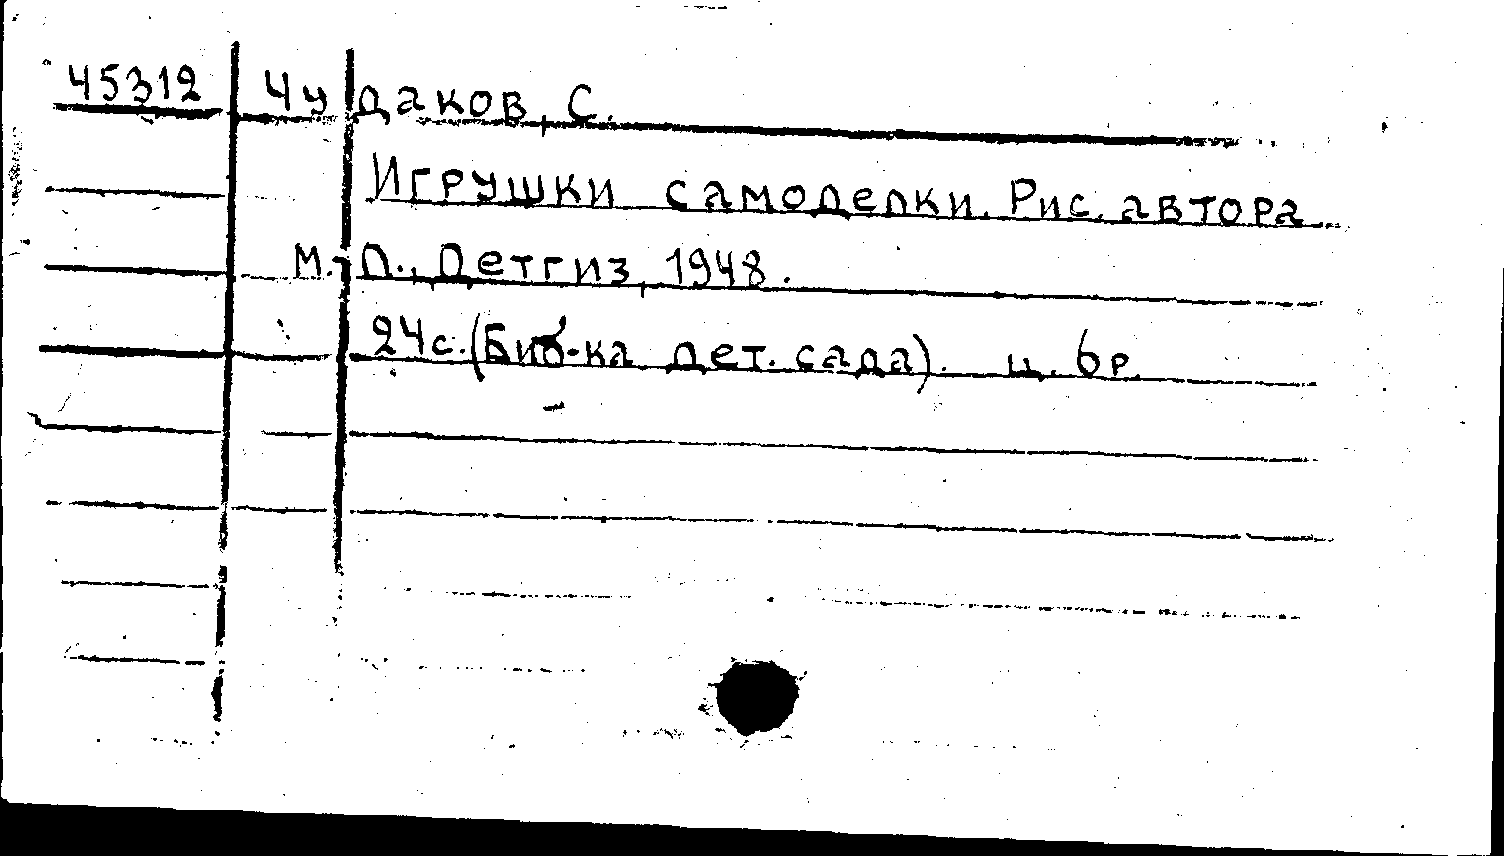 45312 Чудаков, С.
Игрушки самоделки. Рис. автора
М.-Л., Детгиз, 1948.
24с. (Биб-ка дет. сада). ц. 6р.